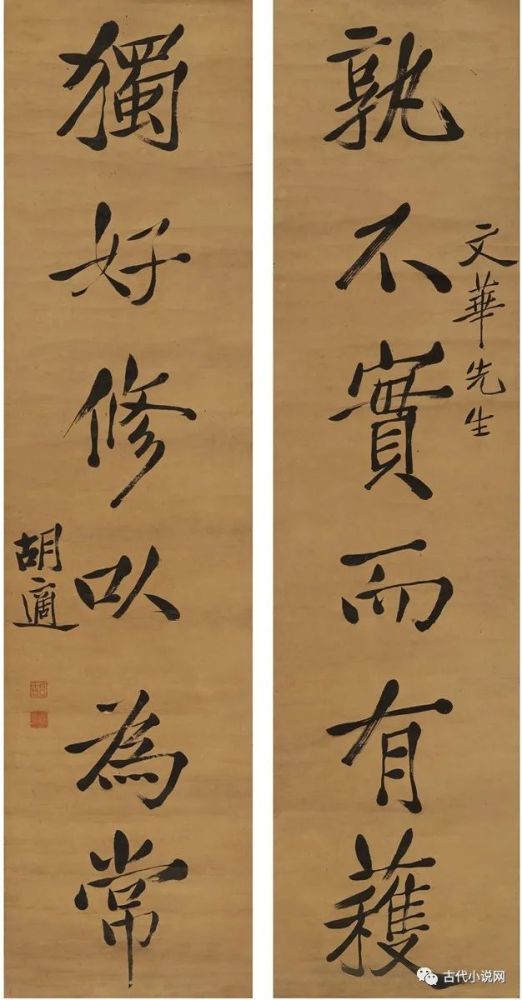 孰不實而有穫
文華先生
獨好修以為常
胡適
古代小说网